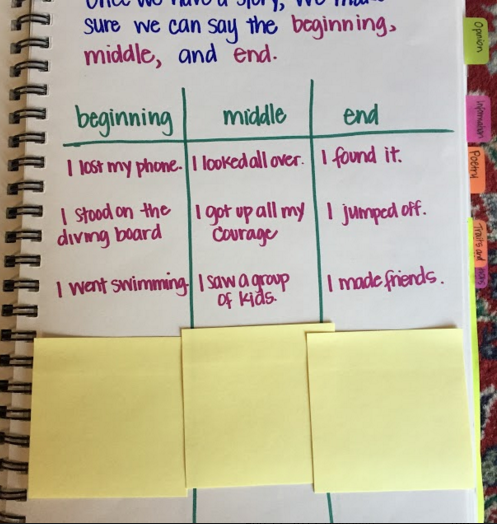 Once we have a story, we
sure we can say the beginning,
middle, and end.
beginning middle end
I lost my phone. I looked all over. I found it.
I stood on the diving board I got up all my courage I jumped off.
I went swimming. I saw a group of kids. I made friends.
Opinion
Information
Poetry
Traits and